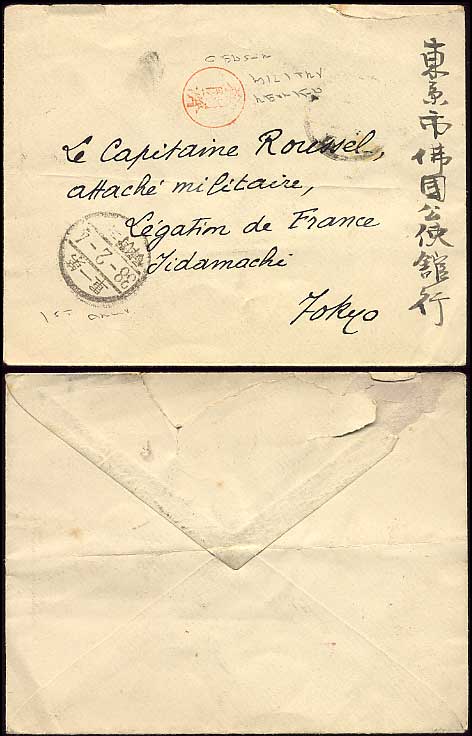 Le Capitaine Roussel,
attaché militaire,
Légation de France
Iidamachi
Tokyo
東京市佛国公使館行
38-2-
1ST ARMY
CENSOR
MILITARY